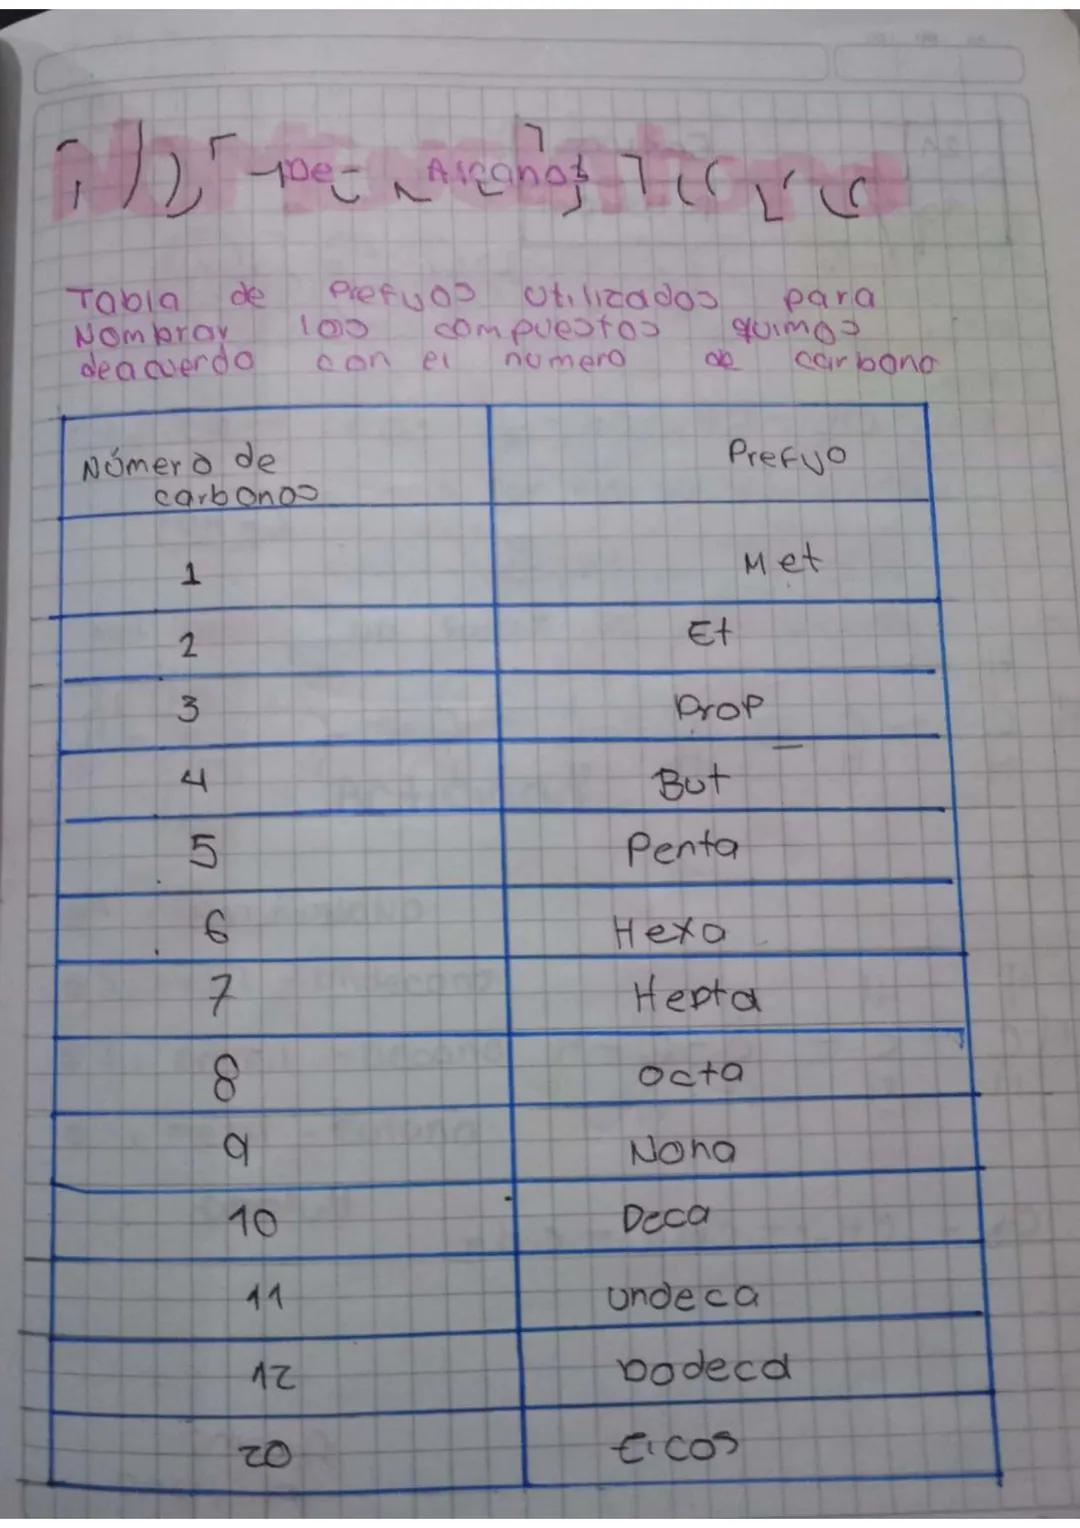 De Alcanos
Tabla de Prefijos utilizados para
Nombrar los compuestos quimos
deacuerdo con el numero de carbono
Número de
carbonos
Prefijo
1 Met
2 Et
3 Prop
4 But
5 Penta
6 Hexa
7 Hepta
8 octa
9 Nona
10 Deca
11 undeca
12 Dodeca
20 Eicos